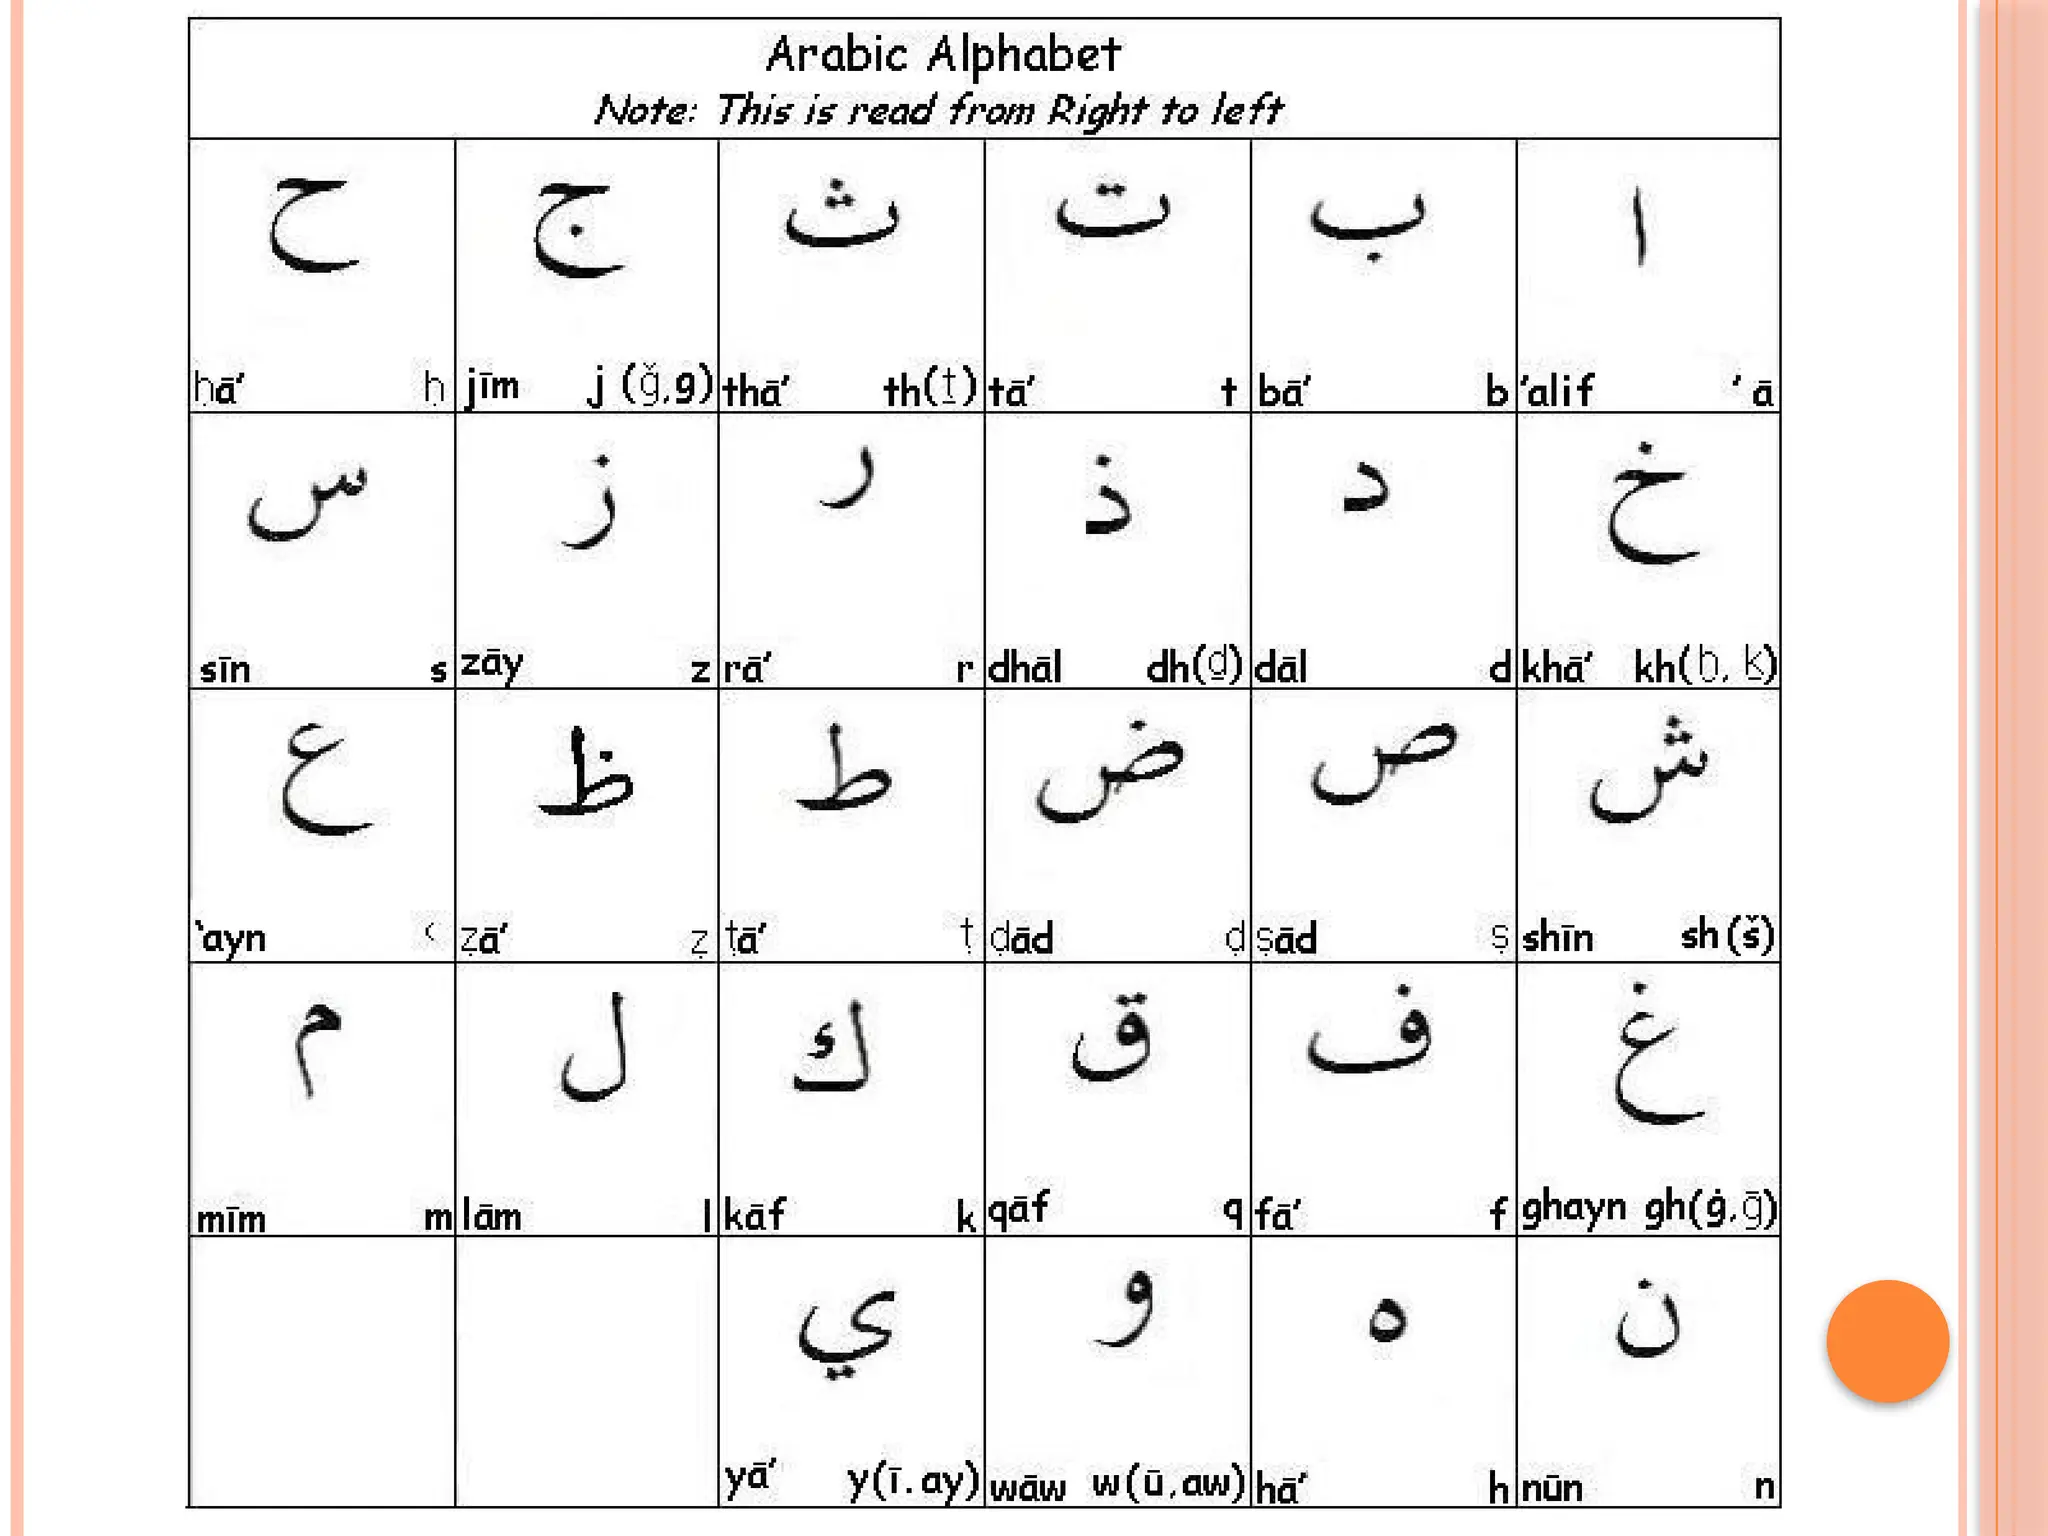 Arabic Alphabet
Note: This is read from Right to left
ا ب ت ث ج ح
’alif ’ ā bā’ b tā’ t thā’ th(ṯ) jīm j (ǧ,g) ḥā’ ḥ
خ د ذ ر ز س
khā’ kh(ḫ, ḵ) dāl d dhāl dh(ḏ) rā’ r zāy z sīn s
ش ص ض ط ظ ع
shīn sh(š) ṣād ṣ ḍād ḍ ṭā’ ṭ ẓā’ ẓ ‘ayn ‘
غ ف ق ك ل م
ghayn gh(ġ,ḡ) fā’ f qāf q kāf k lām l mīm m
ن ه و ي
nūn n hā’ h wāw w(ū,aw) yā’ y(ī.ay)